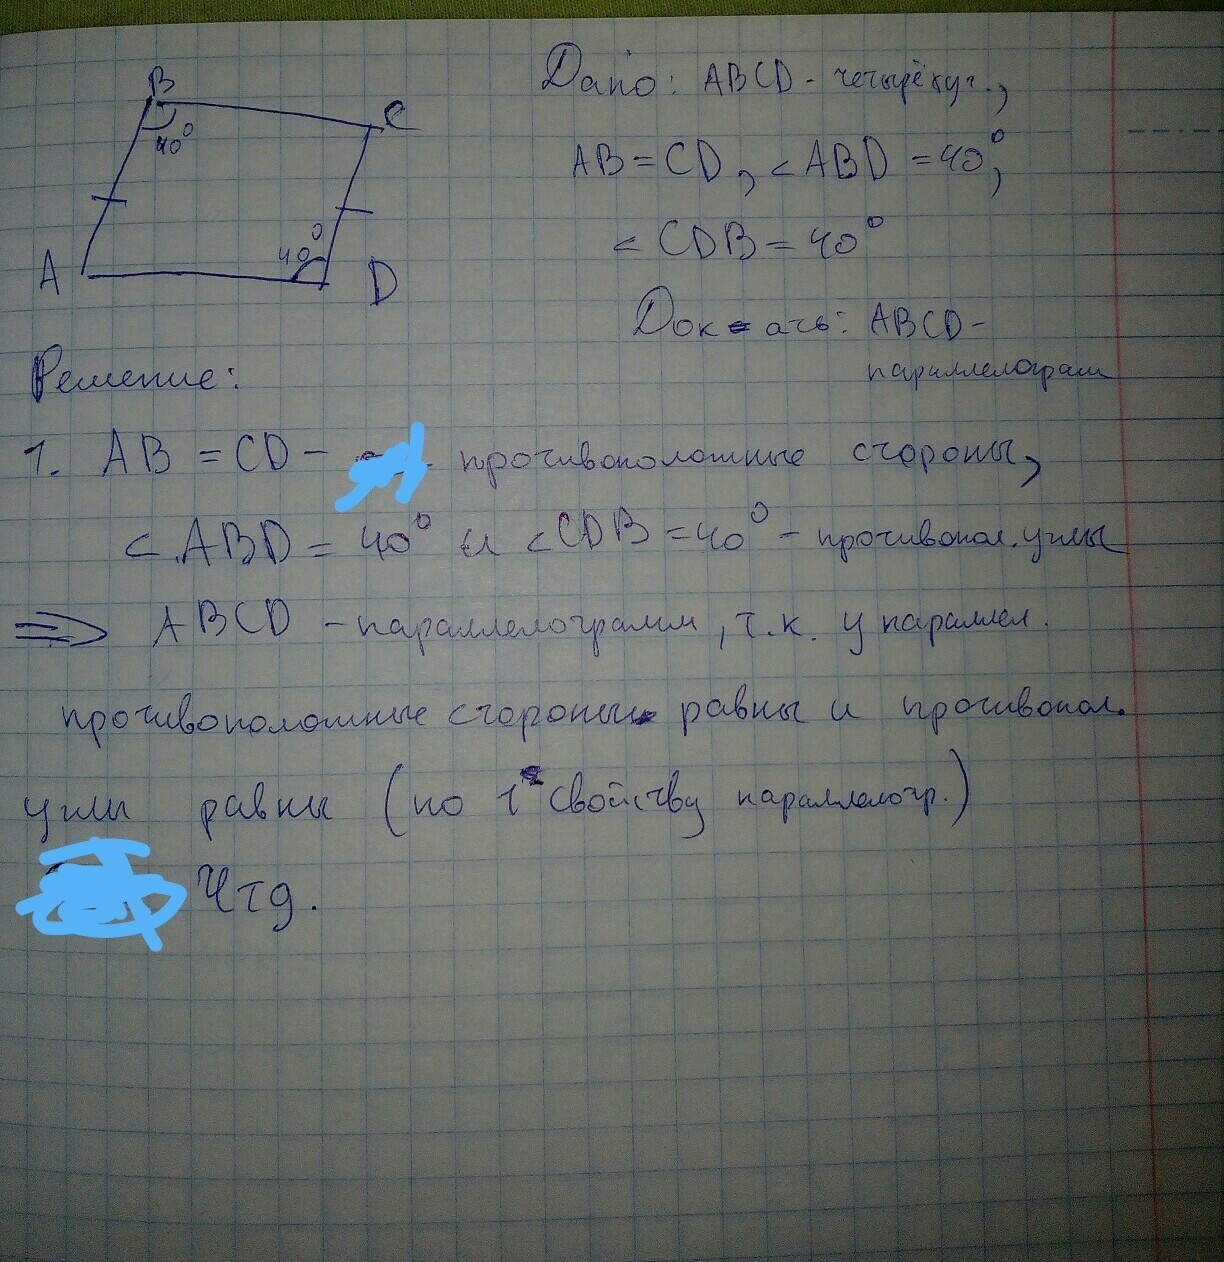 B
C
40°
40°
A
D
Дано: ABCD - четырёхуг.,
AB = CD, < ABD = 40°,
< CDB = 40°
Док-ать: ABCD -
параллелограм
Решение:
1. AB = CD - противоположные стороны,
< ABD = 40° и < CDB = 40° - противопол. углы
=> ABCD - параллелограмм, т.к. у параллел.
противоположные стороны равны и противопол.
углы равны (по 1 свойству параллелогр.)
Чтд.